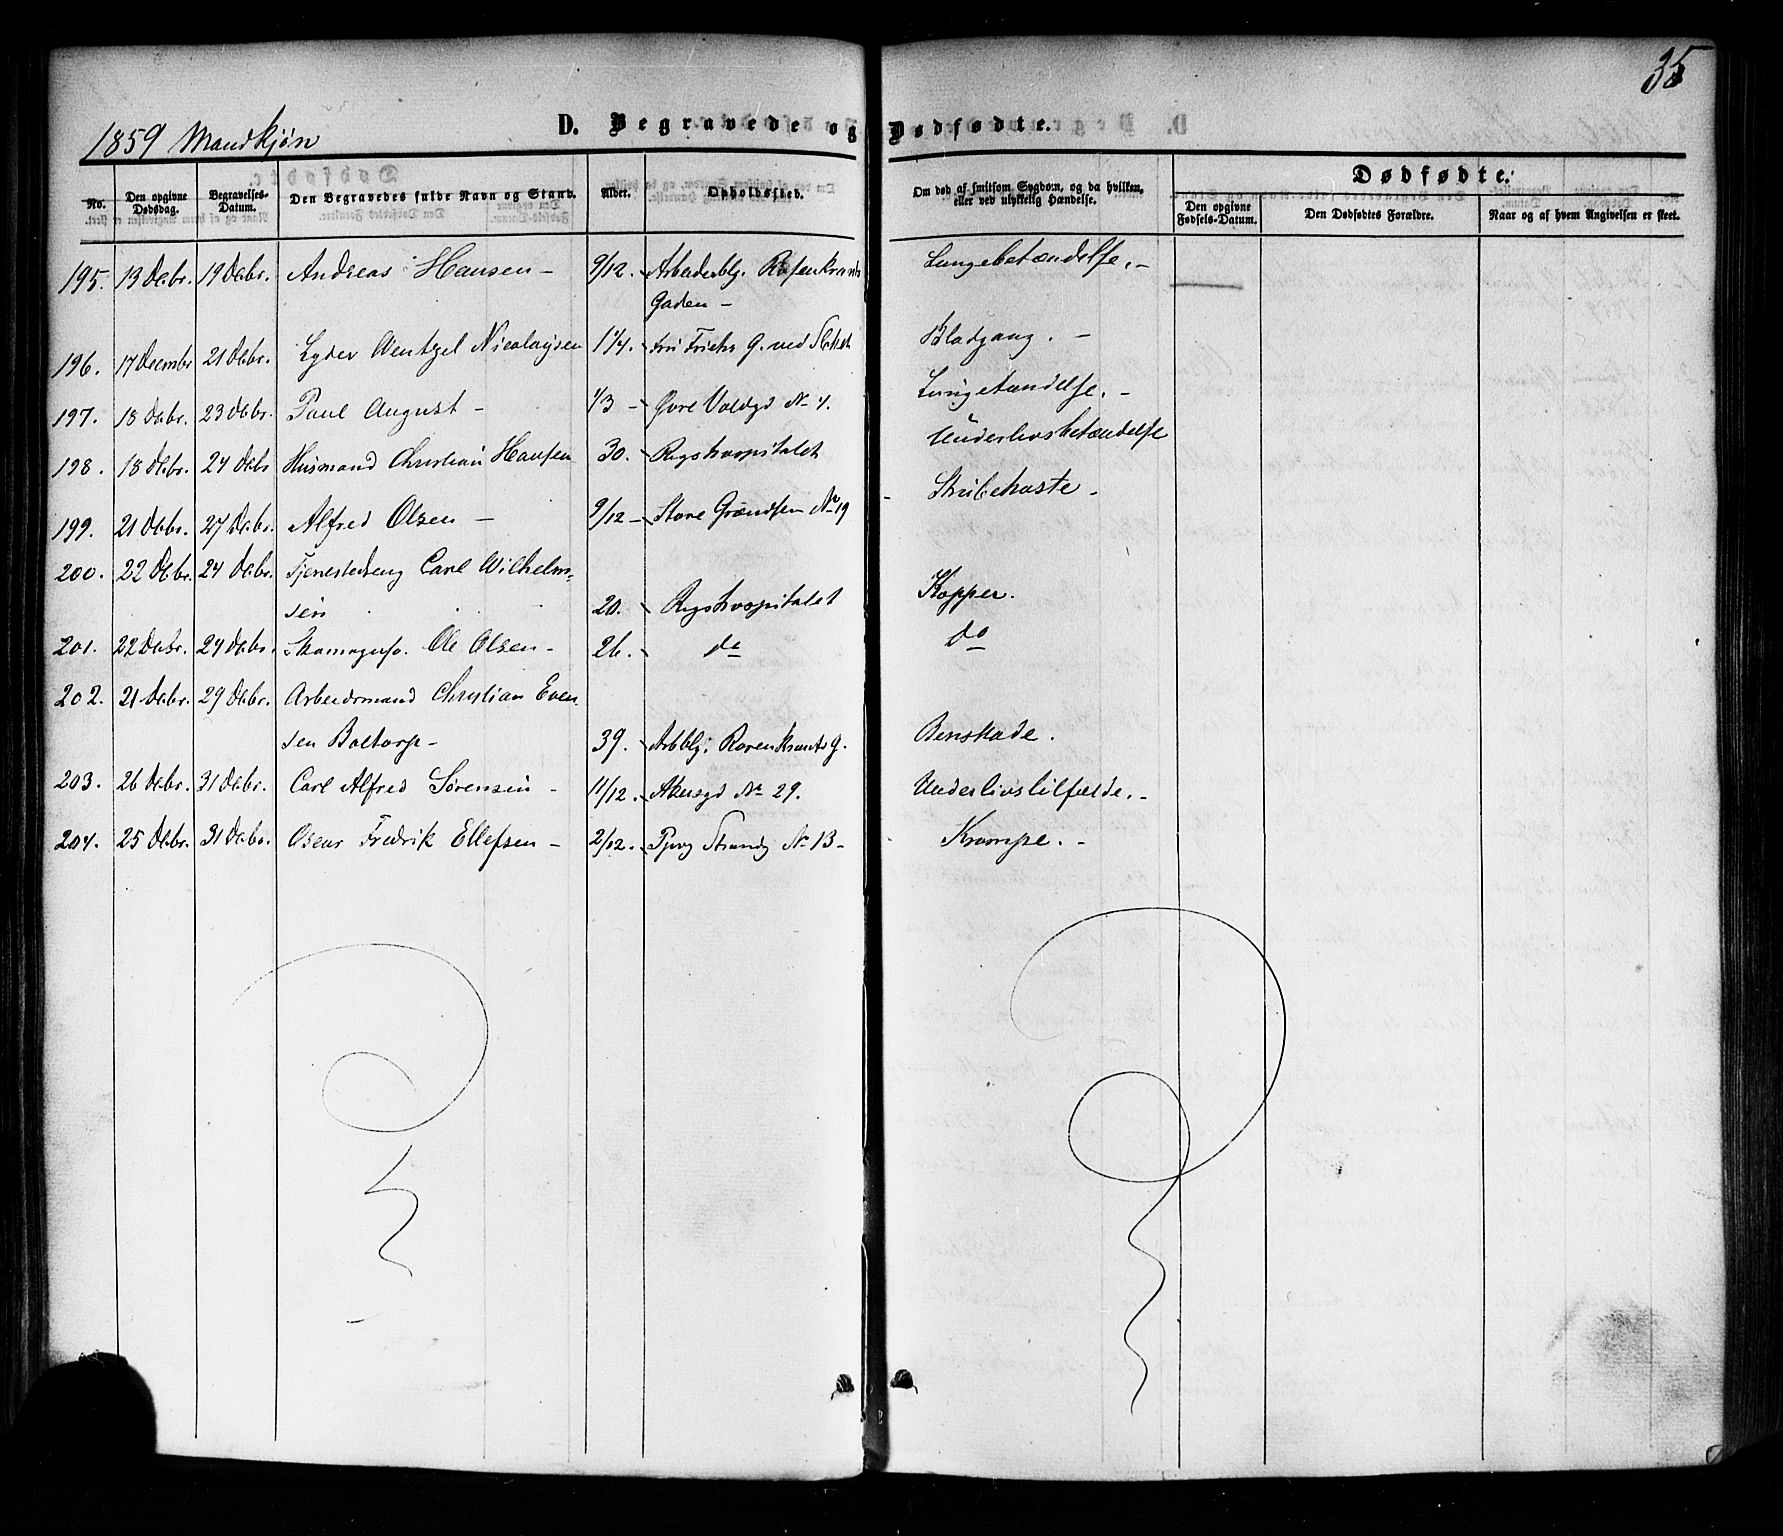 35
1859 Mandkjøn
D. Begravede og Dødfødte.
No. Den opgivne Dødsdag. Begravelses-Datum. Den Begravedes fulde Navn og Stand. Alder. Opholdssted. Om død af smitsom Sygdom, og da hvilken, eller ved ulykkelig Hændelse. Dødfødte.
Den opgivne Fødsels-Datum. Den Dødfødtes Forældre. Naar og af hvem Angivelsen er skeet.
195. 13 Decbr. 19 Decbr. Andreas Hansen – 9/12. Arbeiderblg. Rosenkrants Lungebetændelse. –
Gaden –
196. 17 Decembr 21 Decbr. Lyder Wentzel Nicolaysen 1 1/4. G. ved Slottet Blodgang. –
197. 18 Decbr. 23 Decbr. Paul August – 1/3 – Øvre Voldgd No 4. –
198. 18 Decbr. 24 Decbr Husmand Christian Hansen 30. Rigshospitalet Underlivsbetændelse
199. 21 Decbr. 27 Decbr. Alfred Olsen – 9/12 – Store Grændsen No 19 – Strubehoste –
200. 22 Decbr. 24 Decbr. Tjenestedreng Carl Wilhelm-
sen 20. Rigshospitalet Kopper.
201. 22 Decbr. 29 Decbr. Ole Olsen – 26. do do
202. 21 Decbr. 29 Decbr. Arbeidsmand Christian Even
sen Boltorp – 39. Arbblg. Rosenkrantsg. Benskade.
203. 26 Decbr. 31 Decbr. Carl Alfred Sørensen – 11/12. Akersgd No 29. Underlivstilfælde. –
204. 25 Decbr. 31 Decbr. Oscar Fredrik Ellefsen – 2/12. No 13 – Krampe. –